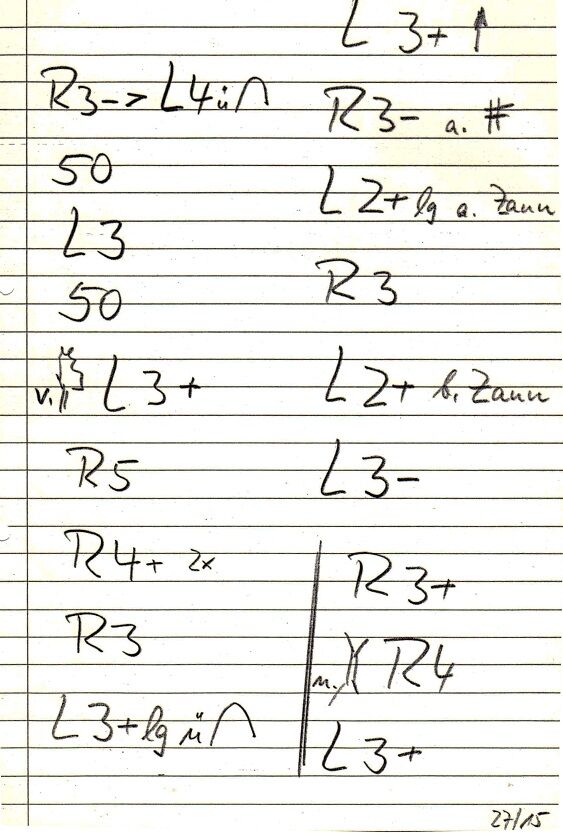 R3- -> L4 ü ∩
50
L3
50
v. L3+
R5
R4+ 2x
R3
L3+ lg ü ∩
L 3+ ↑
R3- a. #
L2+ lg a. Zaun
R3
L2+ b. Zaun
L3-
R3+
n. )( R4
L3+
27/15